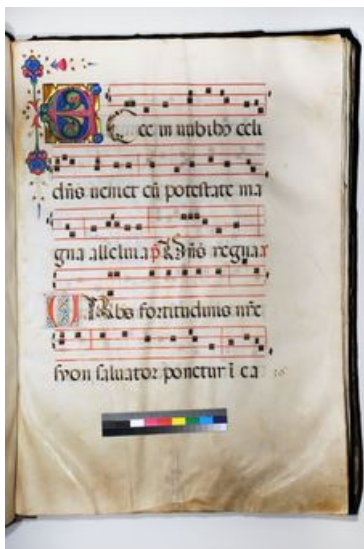 ECce in nubibꝰ celi
dñs ueniet cū potestate ma
gna alleluia p̄ Dñs regna
URbs fortitudinis nr̄e
syon saluator ponetur ī ea